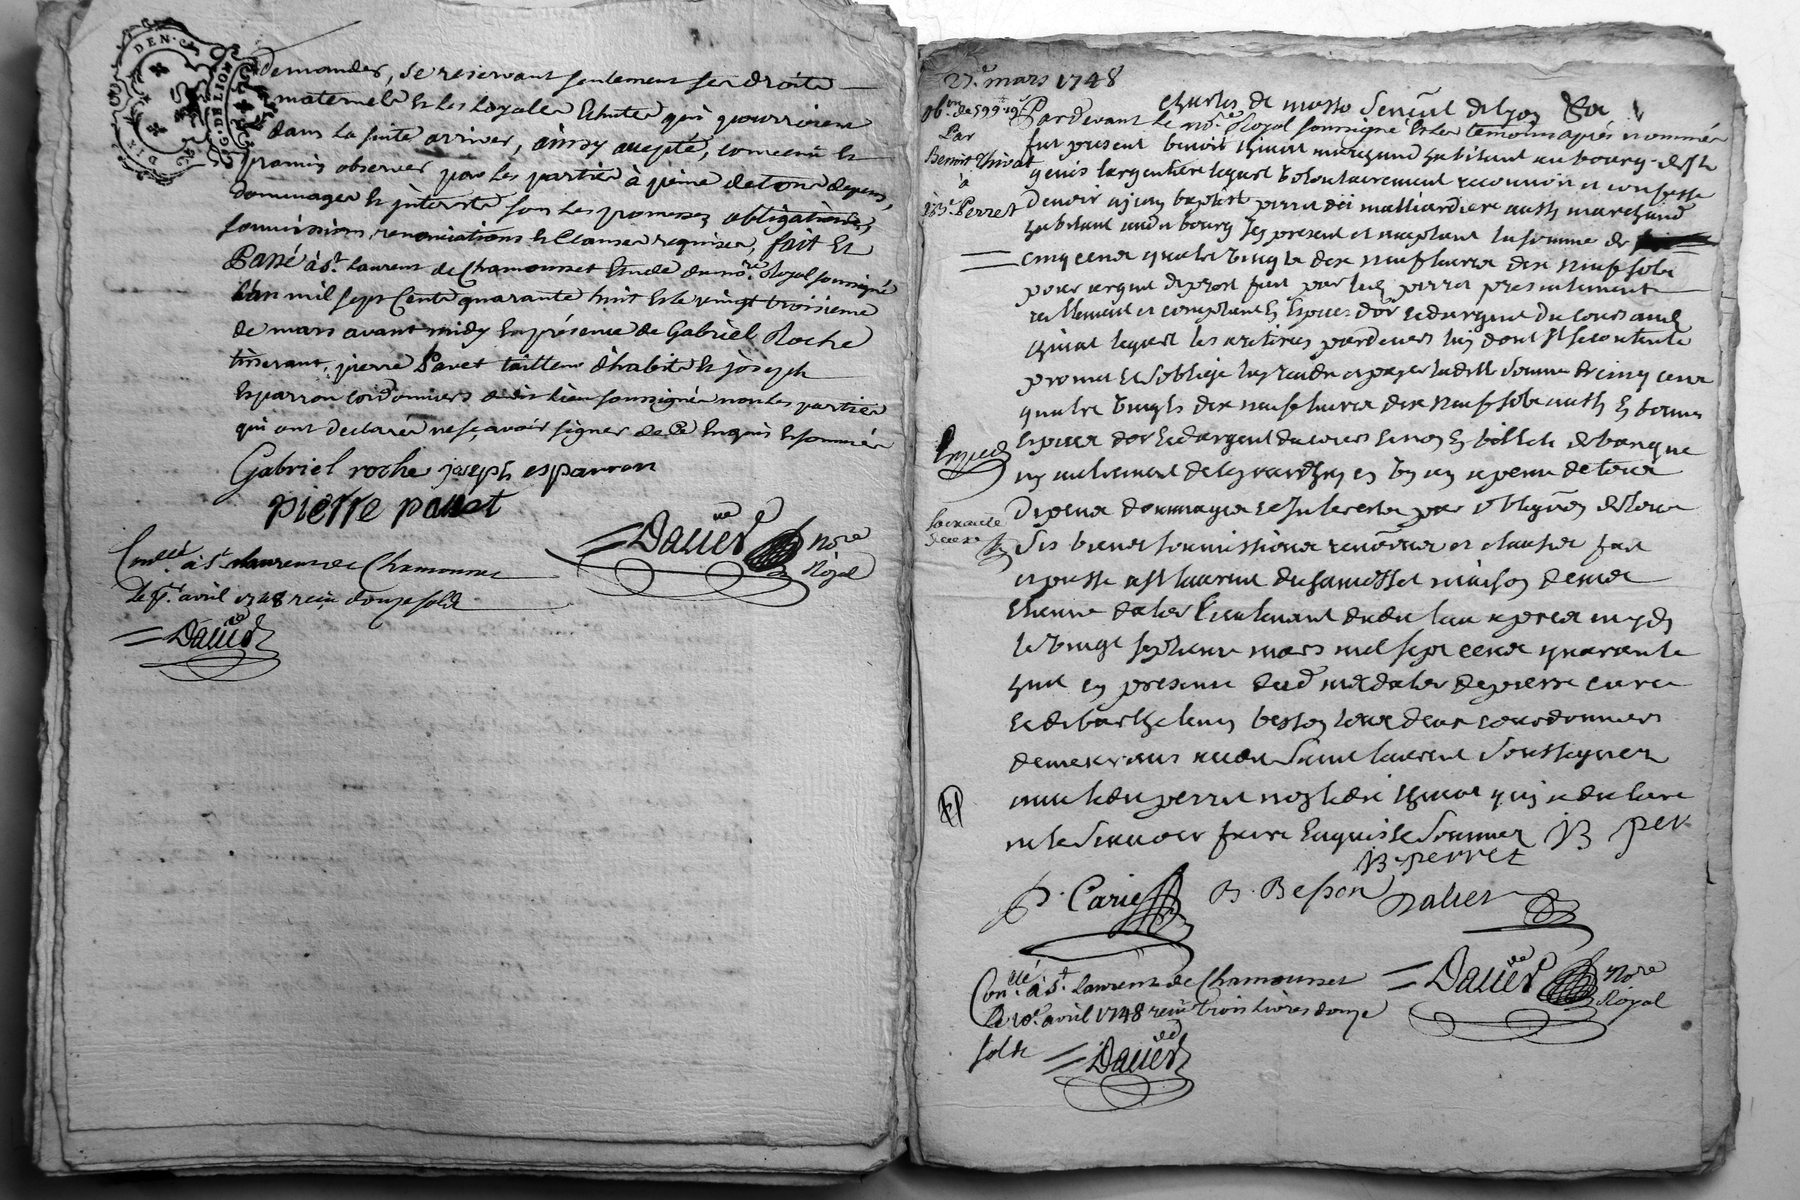 DEN.
G.DE LION
DIN
demander, se reservant seulement ses droits
maternels et les loyales échutes qui pourroient
dans la suite arriver, ainsy accepté, convenu et
promis observer par les parties à peine de tous depens,
dommages et jnterests sous les promesses, obligations,
soumissions, renonciations et clauses requises, fait et
Passé à St. laurent de Chamousset Etude du nore. Royal soussigné
L'an mil sept Cents quarante huit et le vingt troisieme
de mars avant midy En présence de Gabriel Roche
tisserant, pierre Pavet tailleur d'habits et jòseph
Esparron cordonniers dudit lieu soussignés non les parties
qui ont declaré ne sçavoir signer de Ce Enquis et sommés
Gabriel roche joseph esparron
pierre pavet
Dauer nore Royal
Conllé à St. laurent de Chamousset
le 7e. avril 1748 reçu douze sols
Dauer
27e. mars 1748
Obon. de 599# 19s
Par
Benoit Thivat
à
J.B. Perret
charles de masso Senéchal de lyon
Pardevant le nore. Royal soussigné et les temoins après nommés
fut present benoit thivat marchand habitant au bourg de St
genis largentiere lequel volontairement reconnoit et confesse
devoir a jean baptiste perret dit malliardiere aussy marchand
habitant audit bourg jcy present et acceptant la somme de
cinq cents quatre vingts dix neuf livres dix neuf sols
pour argent de prest fait par led. perret presentement
reellement et comptant en Especes d'or et d'argent du cours aud.
thivat lequel les a retirés pardevers luy dont Il se contente
promet et s'oblige luy rendre et payer ladite somme de cinq cents
quatre vingts dix neuf livres dix neuf sols aussy en bonnes
Especes d'or et d'argent du cours et non en billets de banque
ny autrement de
depens dommages et Interests par obligaon. de tous
ses biens soumissions renonons. et clauses fait
et passé a St laurent de chamosset maison de me
Etienne dalier Lieutenant dudit lieu apres midy
le vingt septieme mars mil sept cents quarante
huit en presence dud. me dalier de pierre carie
et de barthelemy besson tous deux cordonniers
demeurants audit Saint laurent Soussignez
avec ledit perret non ledit thivat qui a declaré
ne le Scavoir faire Enquis et Sommez JB per
JB perret
P. Carie B. Besson Dalier
Conllé. à St. laurent de Chamousset
Le 10e. avril 1748 reçu trois livres douze
sols Dauer
Dauer nore Royal